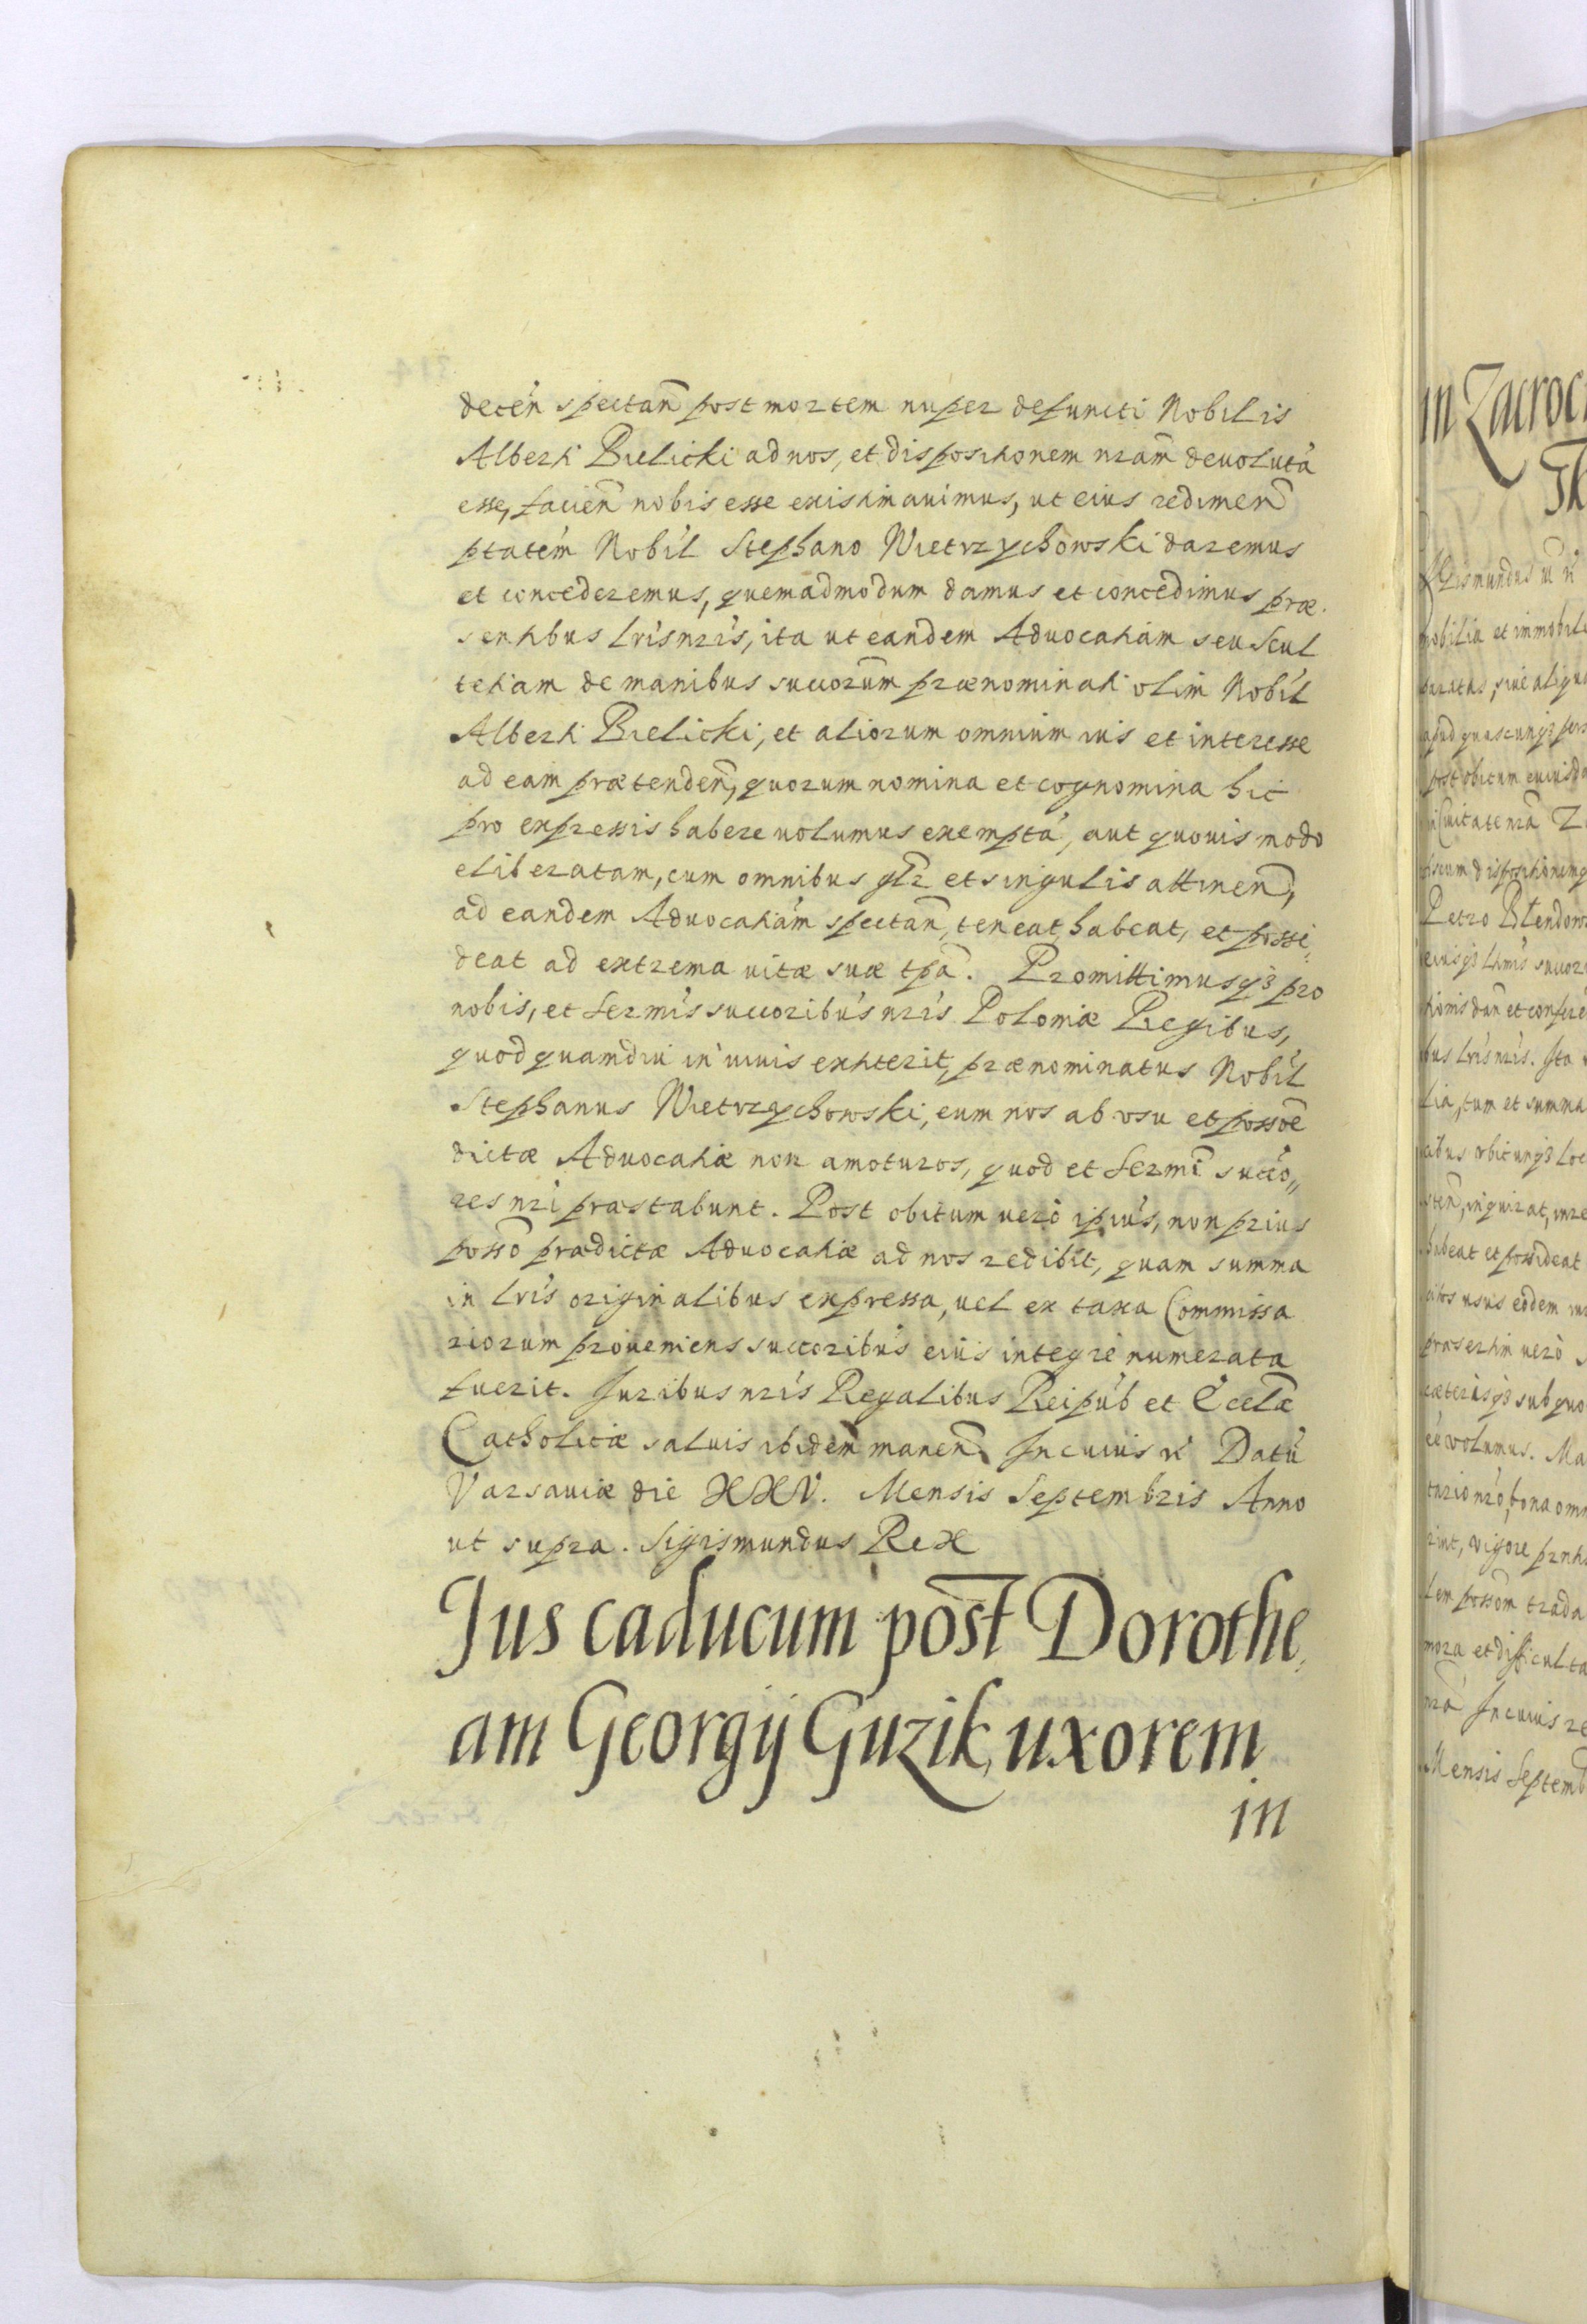 decen̄ spectan̄ post mortem nuper defuncti Nobilis
Alberti Bielicki ad nos, et dispositionem nram̄ deuolutā
esse, facien̄ nobis esse existimauimus, ut eius redimen̄
ptatem Nobil Stephano Wietrzychowski daremus
et concederemus, quemadmodum damus et concedimus præ.
sentibus lris nris, ita ut eandem Aduocatiam seu Scul
tetiam de manibus succorum̄ prænominati olim Nobil
Alberti Bielicki, et aliorum omnium ius et interesse
ad eam prætenden̄, quorum nomina et cognomina hic
pro expressis habere uolumus exemptā, aut quouis modo
eliberatam, cum omnibus glr̄ et singulis attinen̄,
ad eandem Aduocatiam spectan̄, teneat, habeat, et possi,
deat ad extrema uitæ suæ tpā. Promittimusqȝ pro
nobis, et Sermis succoribus nris Poloniæ Regibus,
quod quamdiu in uiuis extiterit, prænominatus Nobil
Stephanus Wietrzychowski, eum nos ab vsu et possoē
dictæ Aduocatiæ non amoturos, quod et Sermi succo„
res nri præstabunt. Post obitum uerò ipius, non prius
possō prædictæ Aduocatiæ ad nos redibit, quam summa
in lris originalibus expressa, uel ex taxa Commissa
riorum proueniens succoribus eius integrè numerata
fuerit. Juribus nris Regalibus Reipub et Ecclæ
Catholicæ saluis ibidem manen̄. In cuius rei Datū
Varsauiæ die XXV. Mensis Septembris Anno
ut supra. Sigismundus Rex
Jus caducum post Dorothe,
am Georgij Guzik, uxorem
in
in Zacroc
nobilia et immobili
apud quascunqȝ pers
post obitum
Petro
bus lris nris. Ita
tum et summa
habeat et possideat
præsertim uerò
cæterisqȝ sub quo
volumus. Ma
bona omn
mora et difficulta
In cuius re
Mensis Septemb